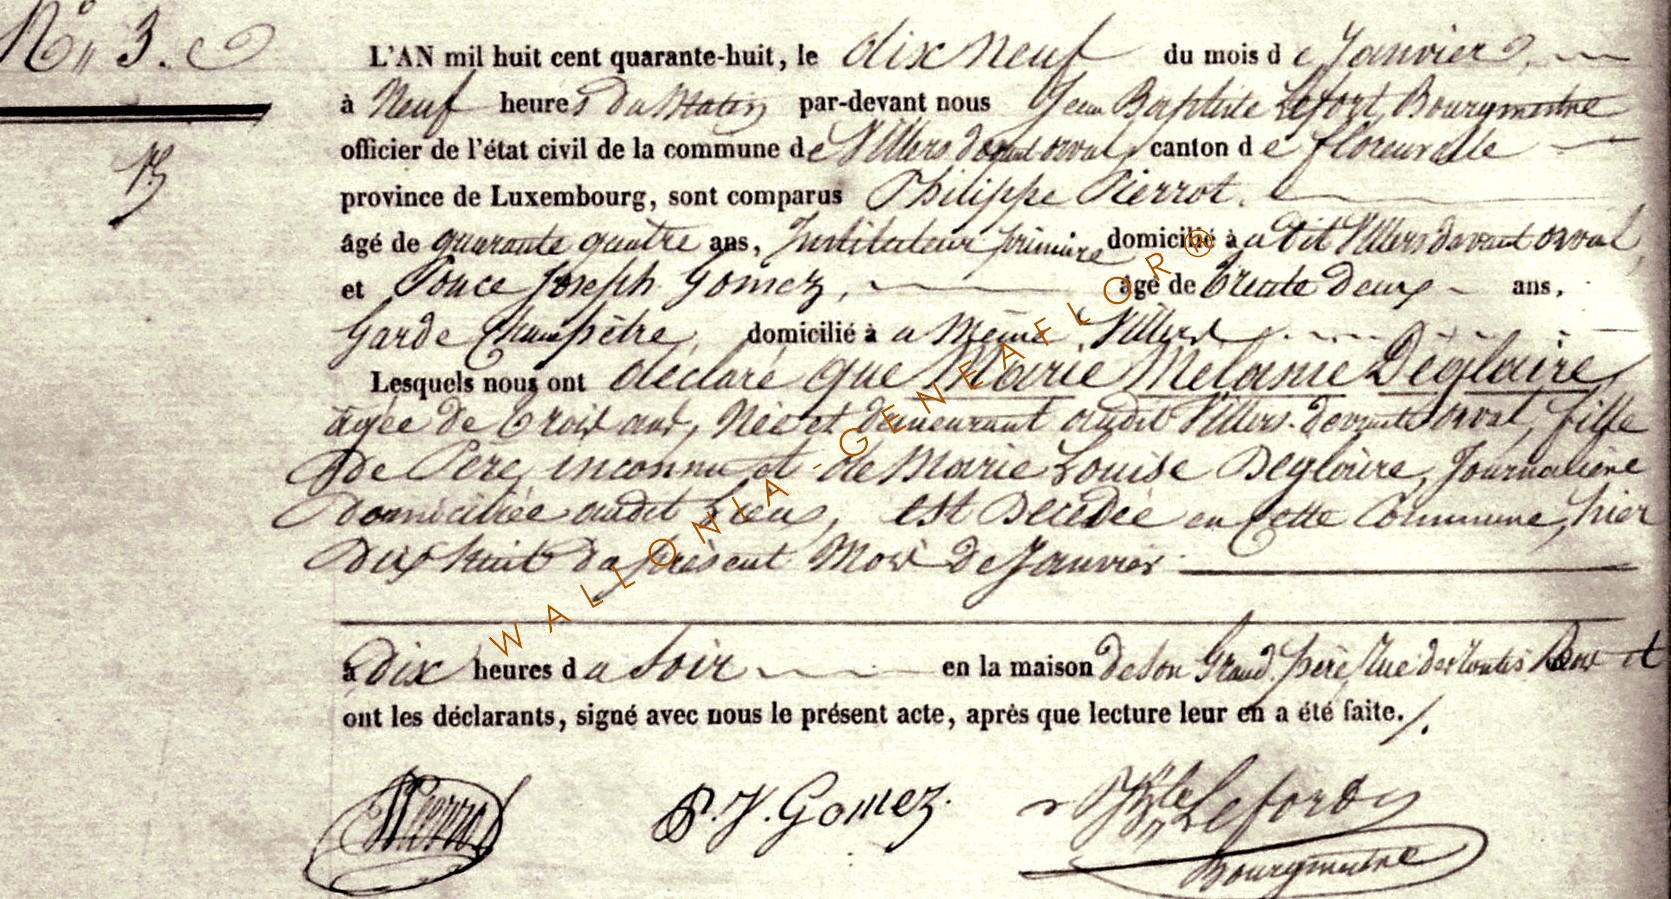 N° 3.
L'AN mil huit cent quarante-huit, le dix neuf du mois de Janvier,
à Neuf heures du Matin par-devant nous Jean Baptiste Lefort, Bourgmestre
officier de l'état civil de la commune de Villers devant orval, canton de florenville
province de Luxembourg, sont comparus Philippe Pierrot.
âgé de quarante quatre ans, Instituteur primaire domicilié à a dit Villers devant orval,
et Ponce Joseph Gomez, âgé de trente deux ans,
Garde Champêtre, domicilié à a Même Villers
Lesquels nous ont déclaré que Marie Mélanie Déglaire
agée de trois ans, Née et demeurant audit Villers-devant orval, fille
de Père inconnu et de Marie Louise Deglaire, Journalière
domiciliée audit Lieu, est Décédée en cette Commune, hier
dix huit du présent Mois de Janvier
à dix heures du soir en la maison de son Grand père, Rue des et
ont les déclarants, signé avec nous le présent acte, après que lecture leur en a été faite./.
Pierrot
P. J. Gomez.
JBte Lefort
Bourgmestre
WALLONIA-GENEAFLOR®